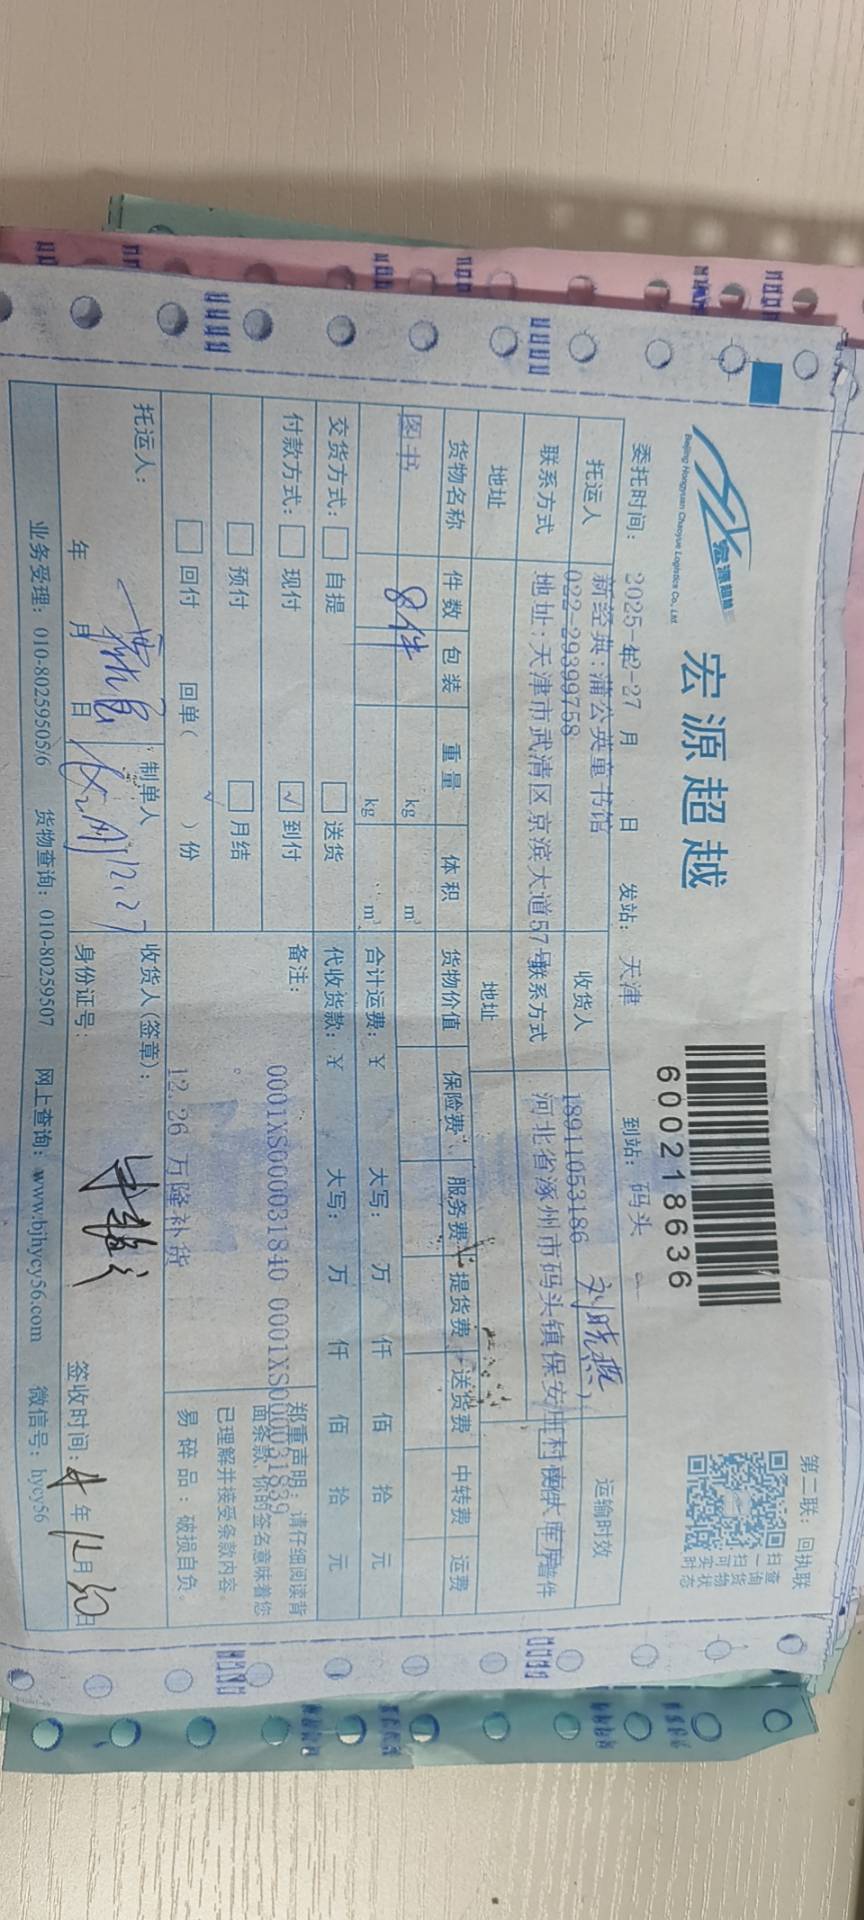 第二联：回执联
宏源超越
Beijing Hongyuan Chaoyue Logistics Co., Ltd.
宏源超越
600218636
扫一扫
查询货物
可实时状态
委托时间： 2025-12-27 年 月 日 发站：天津 到站：码头
托运人 新经典:蒲公英童书馆 收货人 刘晓燕 运输时效
联系方式 022-29399758 联系方式 18911053186
地址 地址:天津市武清区京滨大道57号 地址 河北省涿州市码头镇保安庄村 普件
货物名称 件数 包装 重量 体积 货物价值 保险费 服务费 提货费 送货费 中转费 运费
图书 8件 kg m³
kg m³ 合计运费：¥ 大写： 万 仟 佰 拾 元
交货方式： 自提 送货 代收货款：¥ 大写： 万 仟 佰 拾 元
付款方式： 现付 √到付 备注：
预付 月结 0001XS000031840 0001XS000031839
。
回付 回单（ √ ）份 12.26 万隆补货
郑重声明：请仔细阅读背面条款，你的签名意味着您已理解并接受条款内容。
易碎品：破损自负。
托运人： 制单人 12.27 收货人(签章)：
年 月 日 身份证号： 签收时间： 年 12月30日
业务受理：010-80259505/6 货物查询：010-80259507 网上查询：www.bjhycy56.com 微信号：hycy56